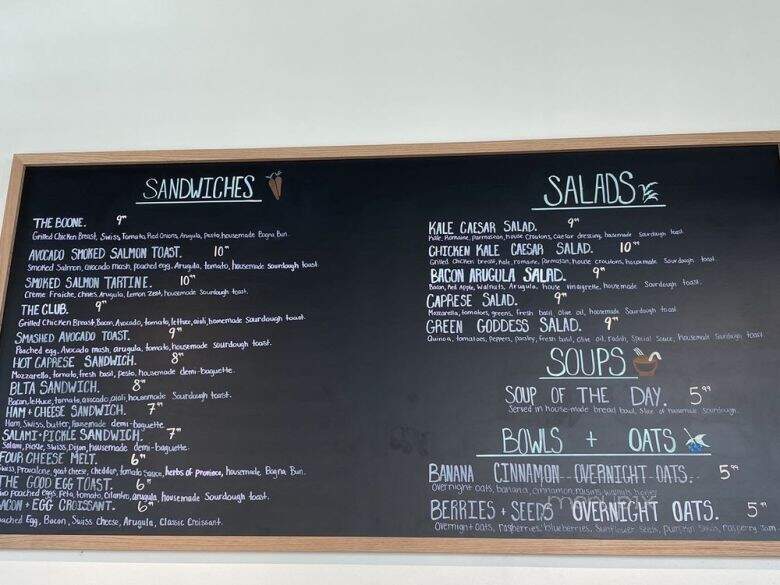 SANDWICHES
THE BOONE. 9
Grilled Chicken Breast, Swiss, Tomato, Red Onions, Arugula, pesto, housemade Bagna Bun.
AVOCADO SMOKED SALMON TOAST. 10
Smoked Salmon, avocado mash, poached egg, Arugula, tomato, housemade sourdough toast.
SMOKED SALMON TARTINE. 10
Créme Fraiche, Chives, Arugula, Lemon Zest, housemade Sourdough toast.
THE CLUB. 9
Grilled Chicken Breast, Bacon, Avocado, tomato, lettuce, aioli, homemade Sourdough toast.
SMASHED AVOCADO TOAST. 9
Poached egg, Avocado mash, arugula, tomato, housemade sourdough toast.
HOT CAPRESE SANDWICH. 8
Mozzarella, tomato, fresh basil, pesto, housemade demi-baguette.
BLTA SANDWICH. 8
Bacon, lettuce, tomato, avocado, aioli, housemade Sourdough toast.
HAM + CHEESE SANDWICH. 7
Ham, Swiss, butter, housemade demi-baguette
SALAMI + PICKLE SANDWICH. 7
Salami, pickle, Swiss, Dijon, housemade demi-baguette.
FOUR CHEESE MELT. 6
Swiss, Provalone, goat cheese, cheddar, tomato sauce, herbs of province, housemade Bagna Bun.
THE GOOD EGG TOAST. 6
poached eggs, Feta, tomato, Cilantro, arugula, housemade Sourdough toast.
ACON + EGG CROISSANT. 6
ached Egg, Bacon, Swiss Cheese, Arugula, Classic Croissant.
SALADS
KALE CAESAR SALAD. 9
Kale, Romaine, parmesan, house Croutons, Caesar dressing, housemade Sourdough toast
CHICKEN KALE CAESAR SALAD. 10
Grilled Chicken breast, Kale, romaine, Parmesan, house croutons, housemade Sourdough toast.
BACON ARUGULA SALAD. 9
Bacon, Red Apple, Walnuts, Arugula, house vinaigrette, housemade Sourdough toast.
CAPRESE SALAD. 9
Mozzarella, tomatoes, greens, fresh basil, olive oil, housemade Sourdough toast
GREEN GODDESS SALAD. 9
Quinoa, tomatoes, Peppers, parsley, fresh basil, olive oil, radish, Special Sauce, housemade Sourdough toast
SOUPS
SOUP OF THE DAY. 5 99
Served in house-made bread bowl, Slice of housemade Sourdough.
BOWLS + OATS
BANANA CINNAMON OVERNIGHT OATS. 5
Overnight oats, banana, cinnamon, raisins, walnuts, honey
menupix
BERRIES + SEEDS OVERNIGHT OATS. 5
Overnight oats, raspberries, blueberries, Sunflower Seeds, pumpkin Seeds, raspberry Jam